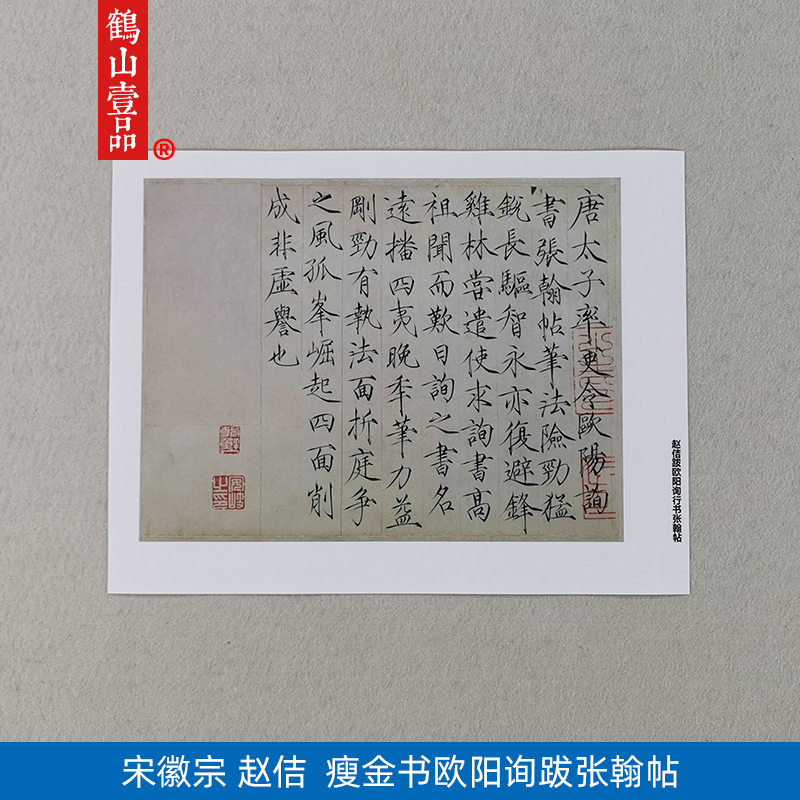 鶴山壹品
®
唐太子率更令歐陽詢
書張翰帖筆法險勁猛
銳長驅智永亦復避鋒
雞林嘗遣使求詢書高
祖聞而歎曰詢之書名
遠播四夷晚年筆力益
剛勁有執法面折庭爭
之風孤峯崛起四面削
成非虛譽也
赵佶跋欧阳询行书张翰帖
宋徽宗 赵佶 瘦金书欧阳询跋张翰帖